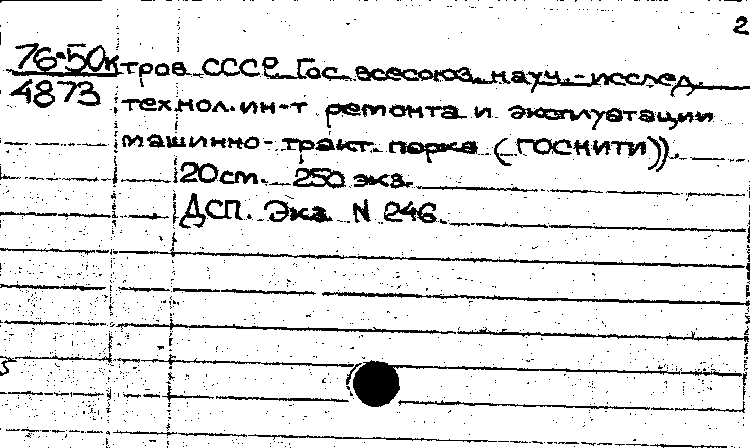 2
76-50к тров СССР. Гос. всесоюз. науч.-исслед.
4873 технол. ин-т ремонта и эксплуатации
машинно-тракт. парка (ГОСНИТИ)).
20 см. 250 экз.
ДСП. Экз. N 246.